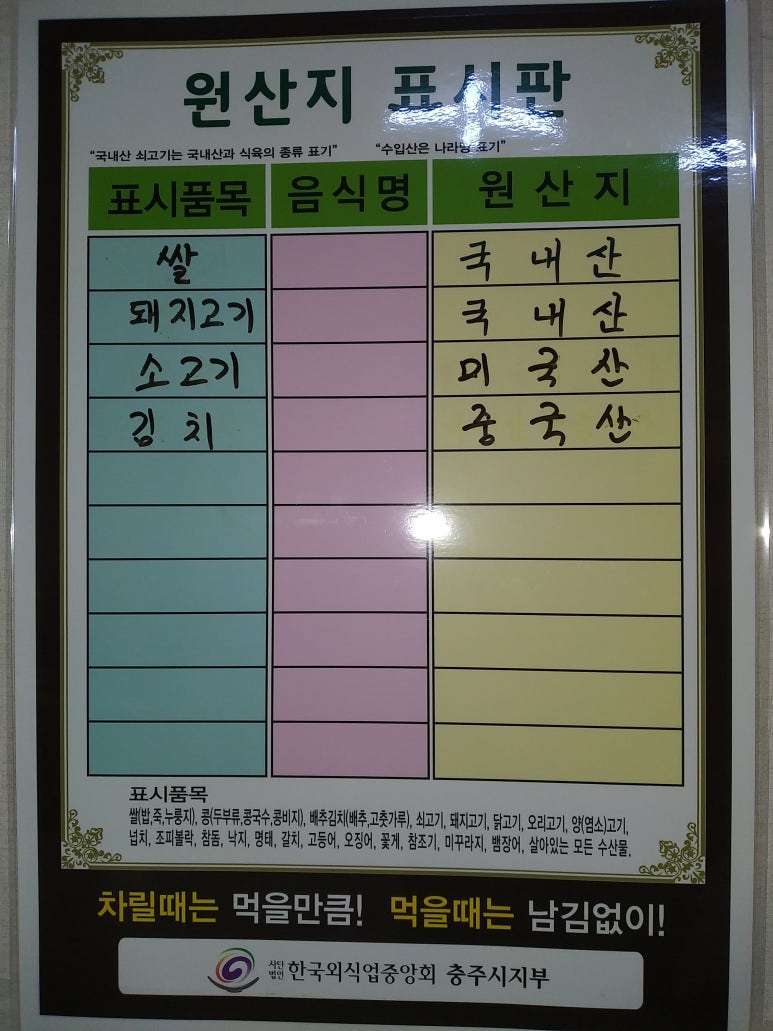 원산지 표시판
"국내산 쇠고기는 국내산과 식육의 종류 표기" "수입산은 나라명 표기"
표시품목 음식명 원산지
쌀 국내산
돼지고기 국내산
소고기 미국산
김치 중국산
표시품목
쌀(밥,죽,누룽지), 콩(두부류,콩국수,콩비지), 배추김치(배추,고춧가루), 쇠고기, 돼지고기, 닭고기, 오리고기, 양(염소)고기,
넙치, 조피볼락, 참돔, 낙지, 명태, 갈치, 고등어, 오징어, 꽃게, 참조기, 미꾸라지, 뱀장어, 살아있는 모든 수산물.
차릴때는 먹을만큼! 먹을때는 남김없이!
사단법인 한국외식업중앙회 충주시지부